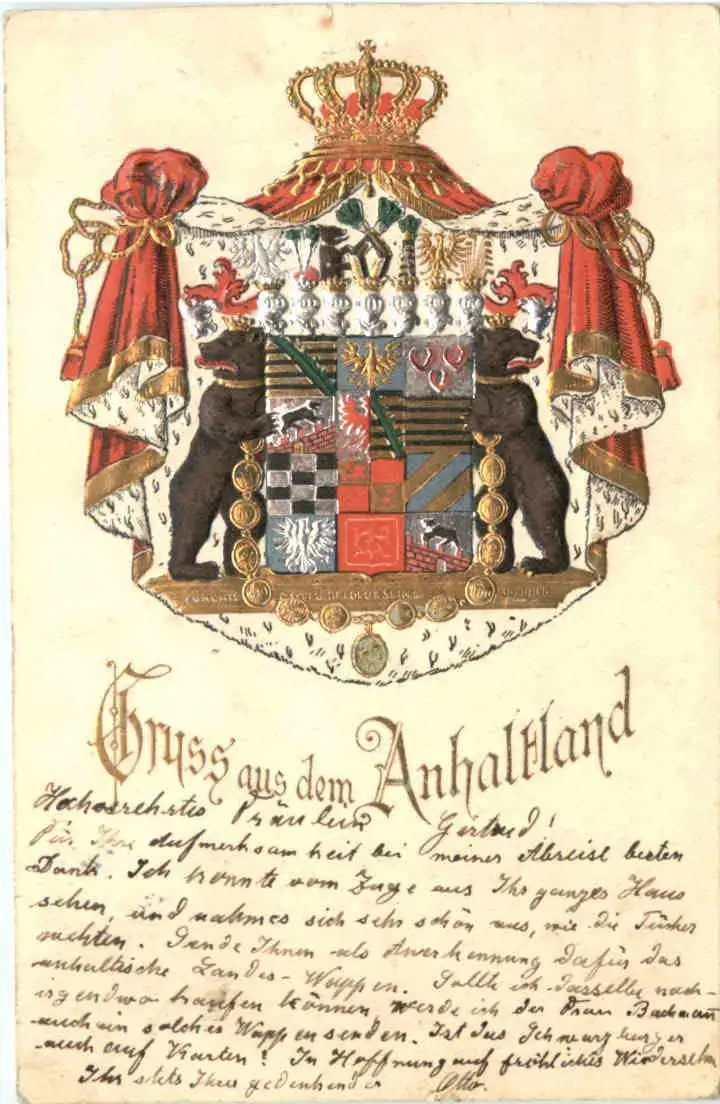 Gruss aus dem Anhaltland
Hochverehrtes Fräulein Gertrud!
Für Ihre Aufmerksamkeit bei meiner Abreise besten
Dank. Ich konnte vom Zuge aus Ihr ganzes Haus
sehen, und nahm es sich sehr schön aus, wie die Tücher
wehten. Sende Ihnen als Anerkennung dafür das
anhaltische Landes-Wappen. Sollte ich dasselbe noch
irgendwo kaufen können, werde ich der Frau Bachmann
auch ein solches Wappen senden. Ist das Schwarzburger
auch auf Karten? In Hoffnung auf fröhliches Wiedersehn
Ihr stets Ihrer gedenkender Otto.